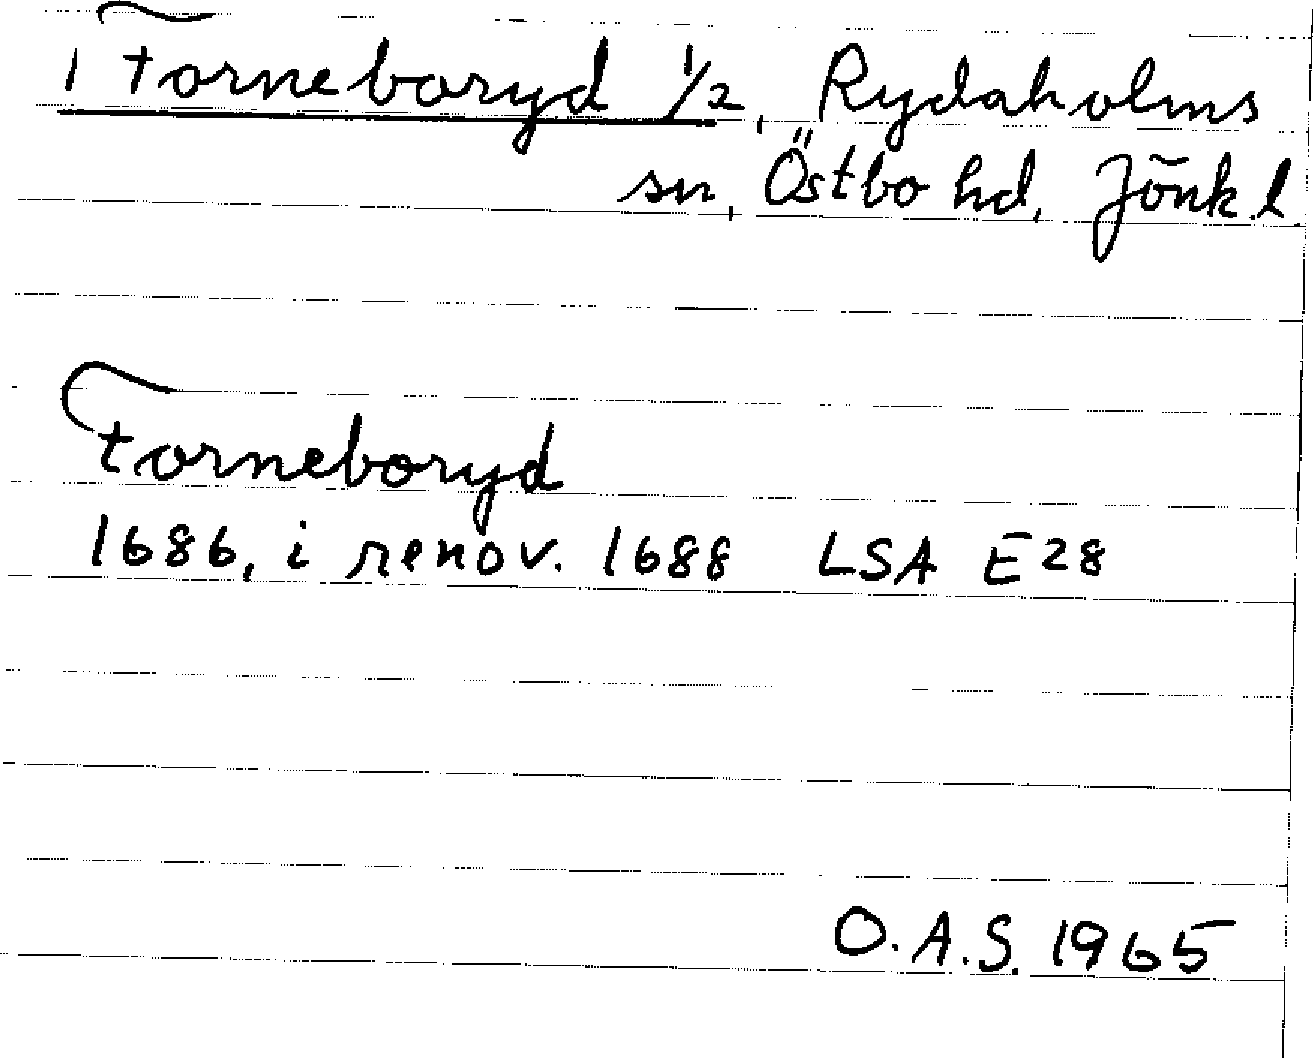 1 Torneboryd 1/2, Rydaholms
sn, Östbo hd, Jönk.l.
Torneboryd
1686, i renov. 1688 LSA E28
O.A.S. 1965